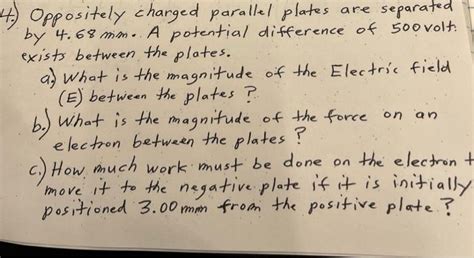 4.) Oppositely charged parallel plates are separated
by 4.68 mm. A potential difference of 500 volt
exists between the plates.
a.) What is the magnitude of the Electric field
(E) between the plates ?
b.) What is the magnitude of the force on an
electron between the plates ?
c.) How much work must be done on the electron t
move it to the negative plate if it is initially
positioned 3.00 mm from the positive plate ?